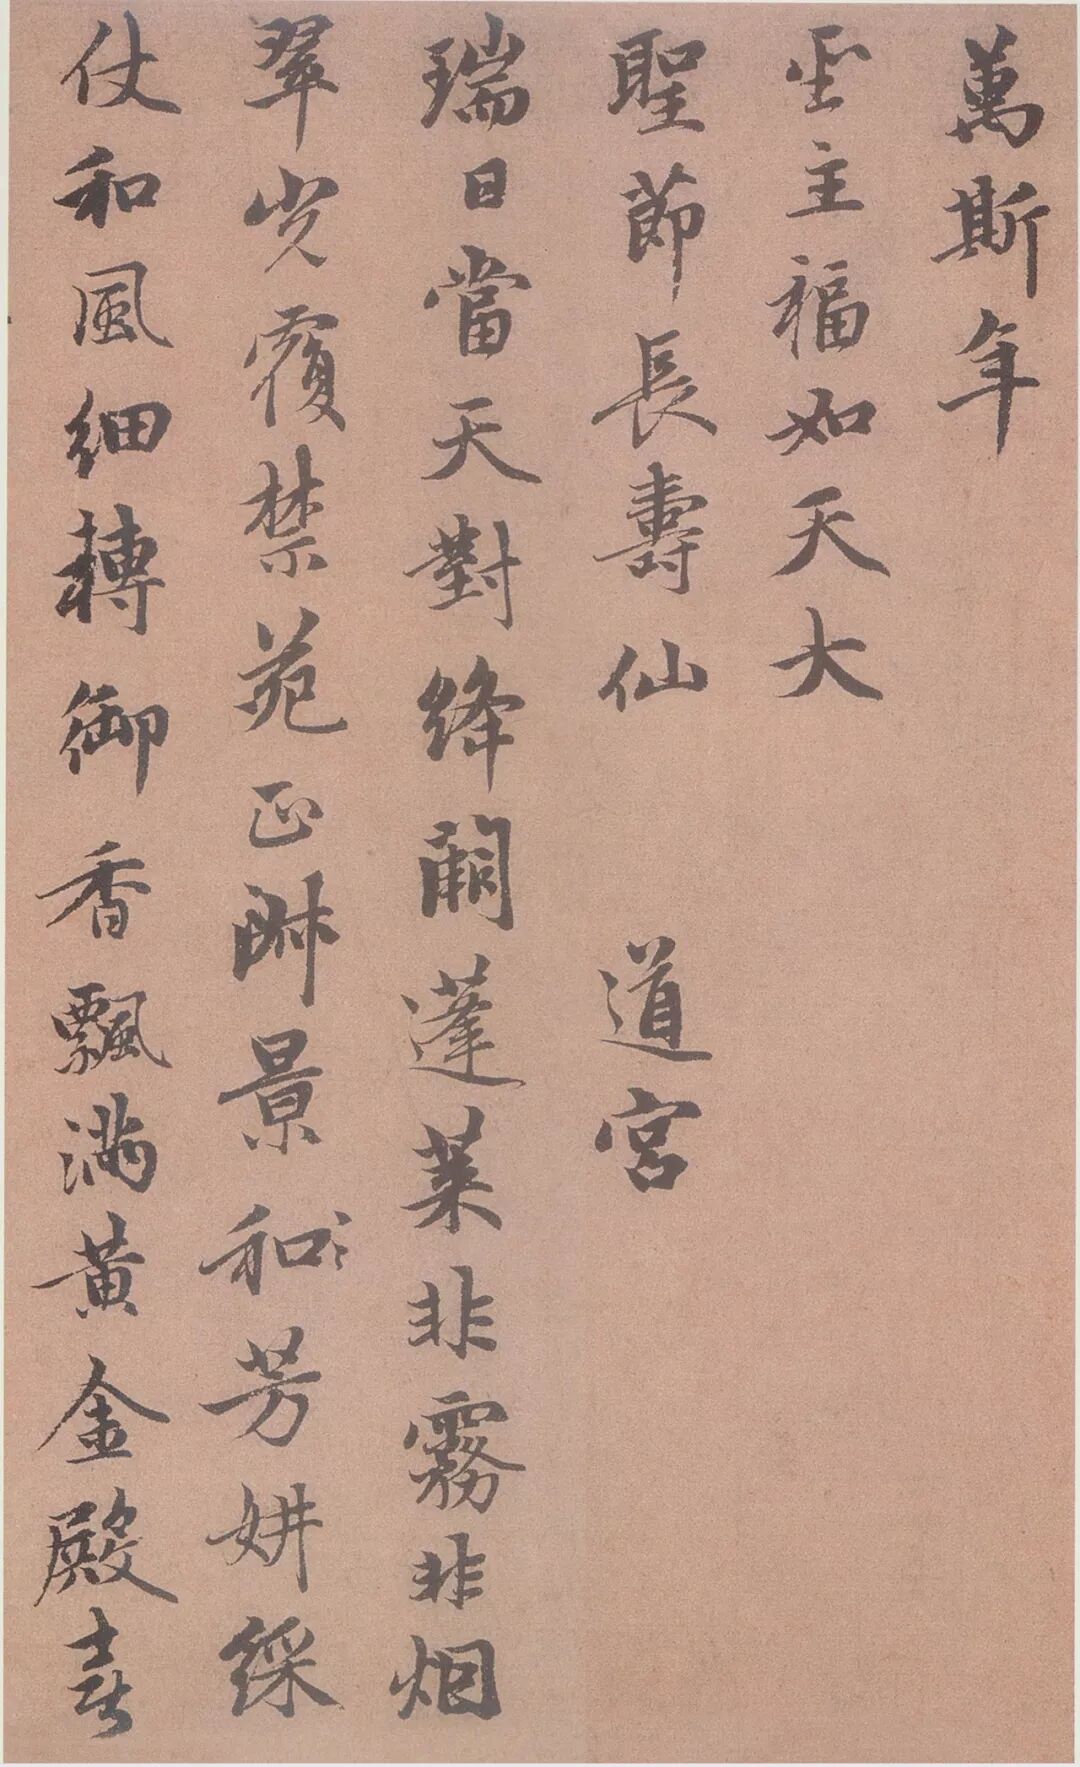 萬斯年
聖主福如天大
聖節長壽仙　道宮
瑞日當天對絳闕蓬萊非霧非烟
翠光覆禁苑正淑景和芳妍綵
仗和風細轉御香飄滿黃金殿喜